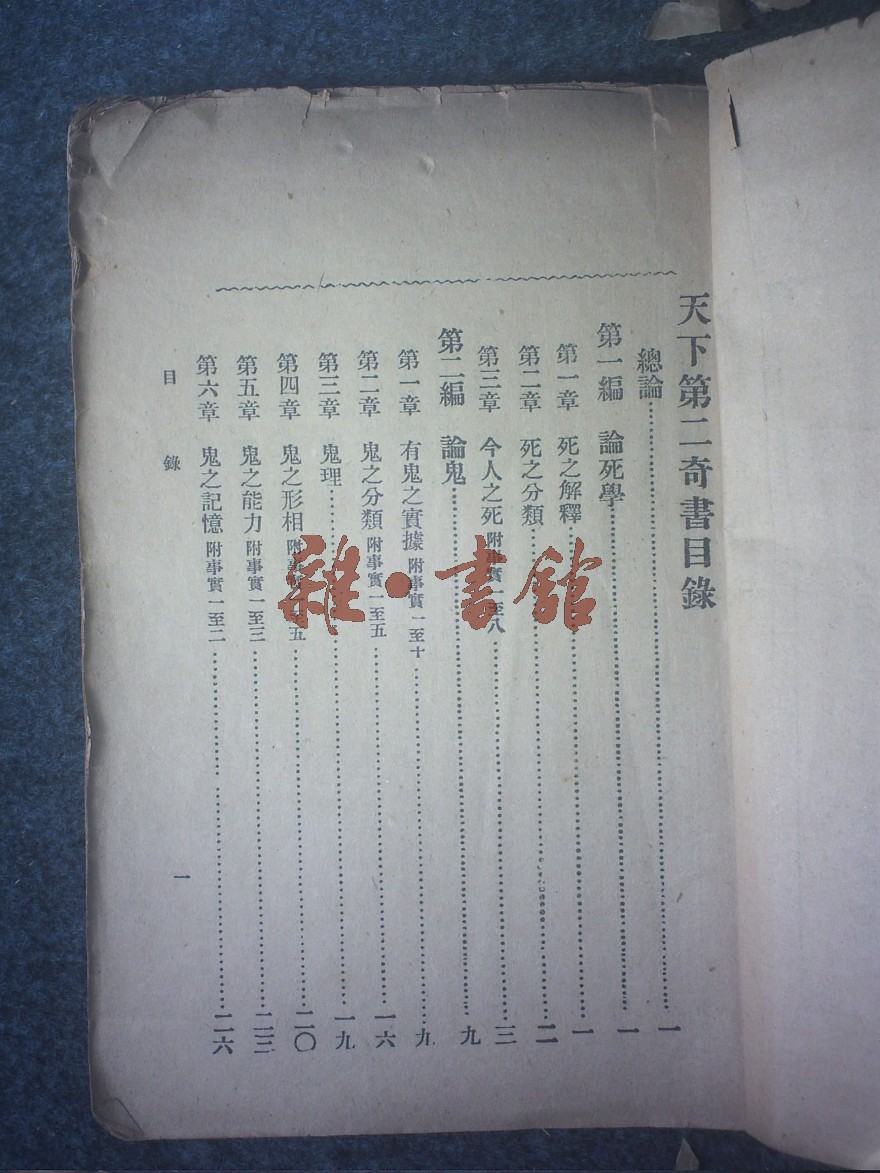 天下第二奇書目錄
總論……一
第一編 論死學……一
第一章 死之解釋……一
第二章 死之分類……二
第三章 今人之死 附事實一至八……三
第二編 論鬼……九
第一章 有鬼之實據 附事實一至十……九
第二章 鬼之分類 附事實一至五……一六
第三章 鬼理……一九
第四章 鬼之形相 附事實一至五……二〇
第五章 鬼之能力 附事實一至三……二三
第六章 鬼之記憶 附事實一至二……二六
目錄 一
雜·書館